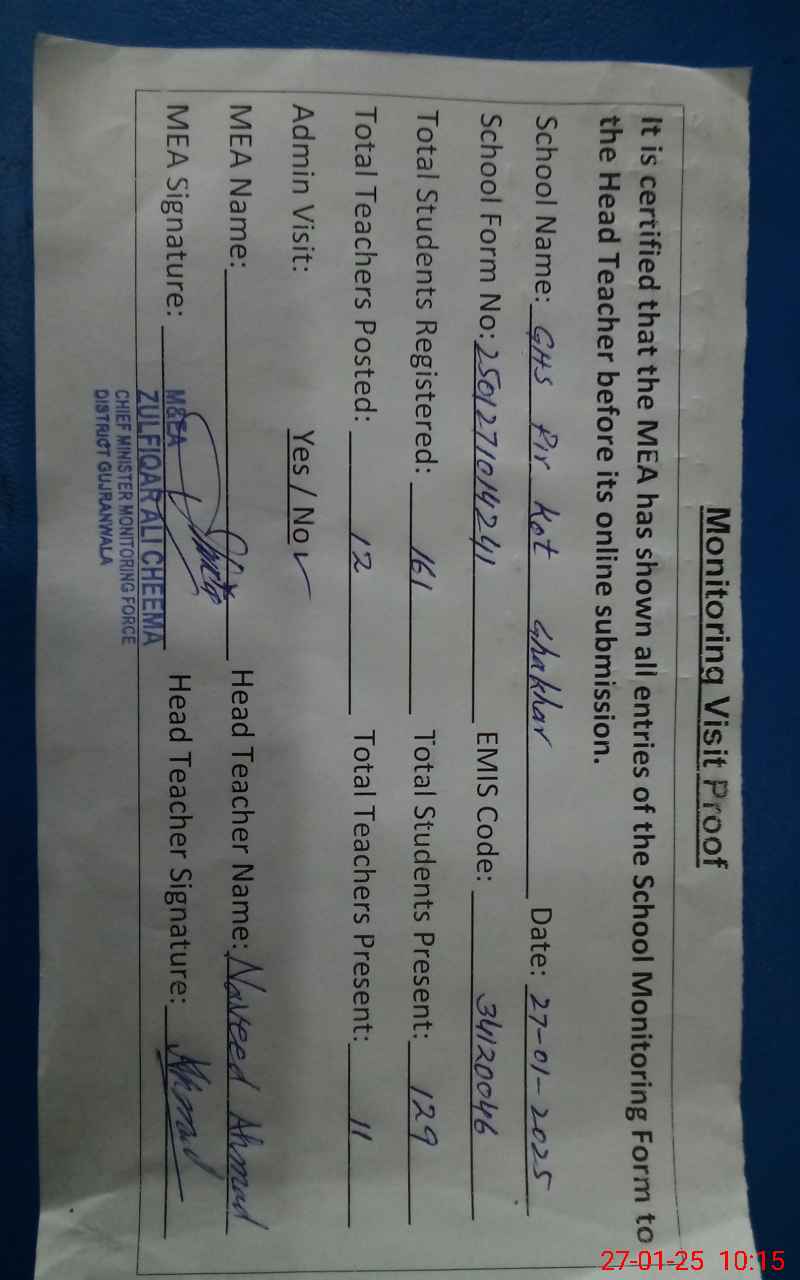 Monitoring Visit Proof
It is certified that the MEA has shown all entries of the School Monitoring Form to
the Head Teacher before its online submission.
School Name: GHS Pir Kot Ghakhar Date: 27-01-2025
School Form No: 250127101424 EMIS Code: 34120046
Total Students Registered: 161 Total Students Present: 129
Total Teachers Posted: 12 Total Teachers Present: 11
Admin Visit: Yes / No ✓
MEA Name: Head Teacher Name: Naveed Ahmad
MEA Signature: Head Teacher Signature: Ahmad
M&EA
ZULFIQAR ALI CHEEMA
CHIEF MINISTER MONITORING FORCE
DISTRICT GUJRANWALA
27-01-25 10:15